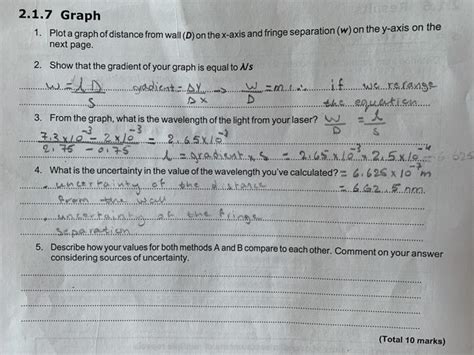 2.1.7 Graph
1. Plot a graph of distance from wall (D) on the x-axis and fringe separation (w) on the y-axis on the
next page.
2. Show that the gradient of your graph is equal to λ/s
w = λD/S gradient = ΔY/ΔX → W/D = m ∴ if we rerange
the equation
3. From the graph, what is the wavelength of the light from your laser? W/D = λ/S
7.3x10⁻³ - 2x10⁻³ / 2.75 - 0.75 = 2.65x10⁻³
λ = gradient x S = 2.65x10⁻³ x 2.5x10⁻⁴ = 6.625
4. What is the uncertainty in the value of the wavelength you've calculated? = 6.625 x 10⁻⁷ m
• uncertainty of the distance = 662.5 nm.
from the wall
• uncertainty of the fringe
separation
5. Describe how your values for both methods A and B compare to each other. Comment on your answer
considering sources of uncertainty.
(Total 10 marks)